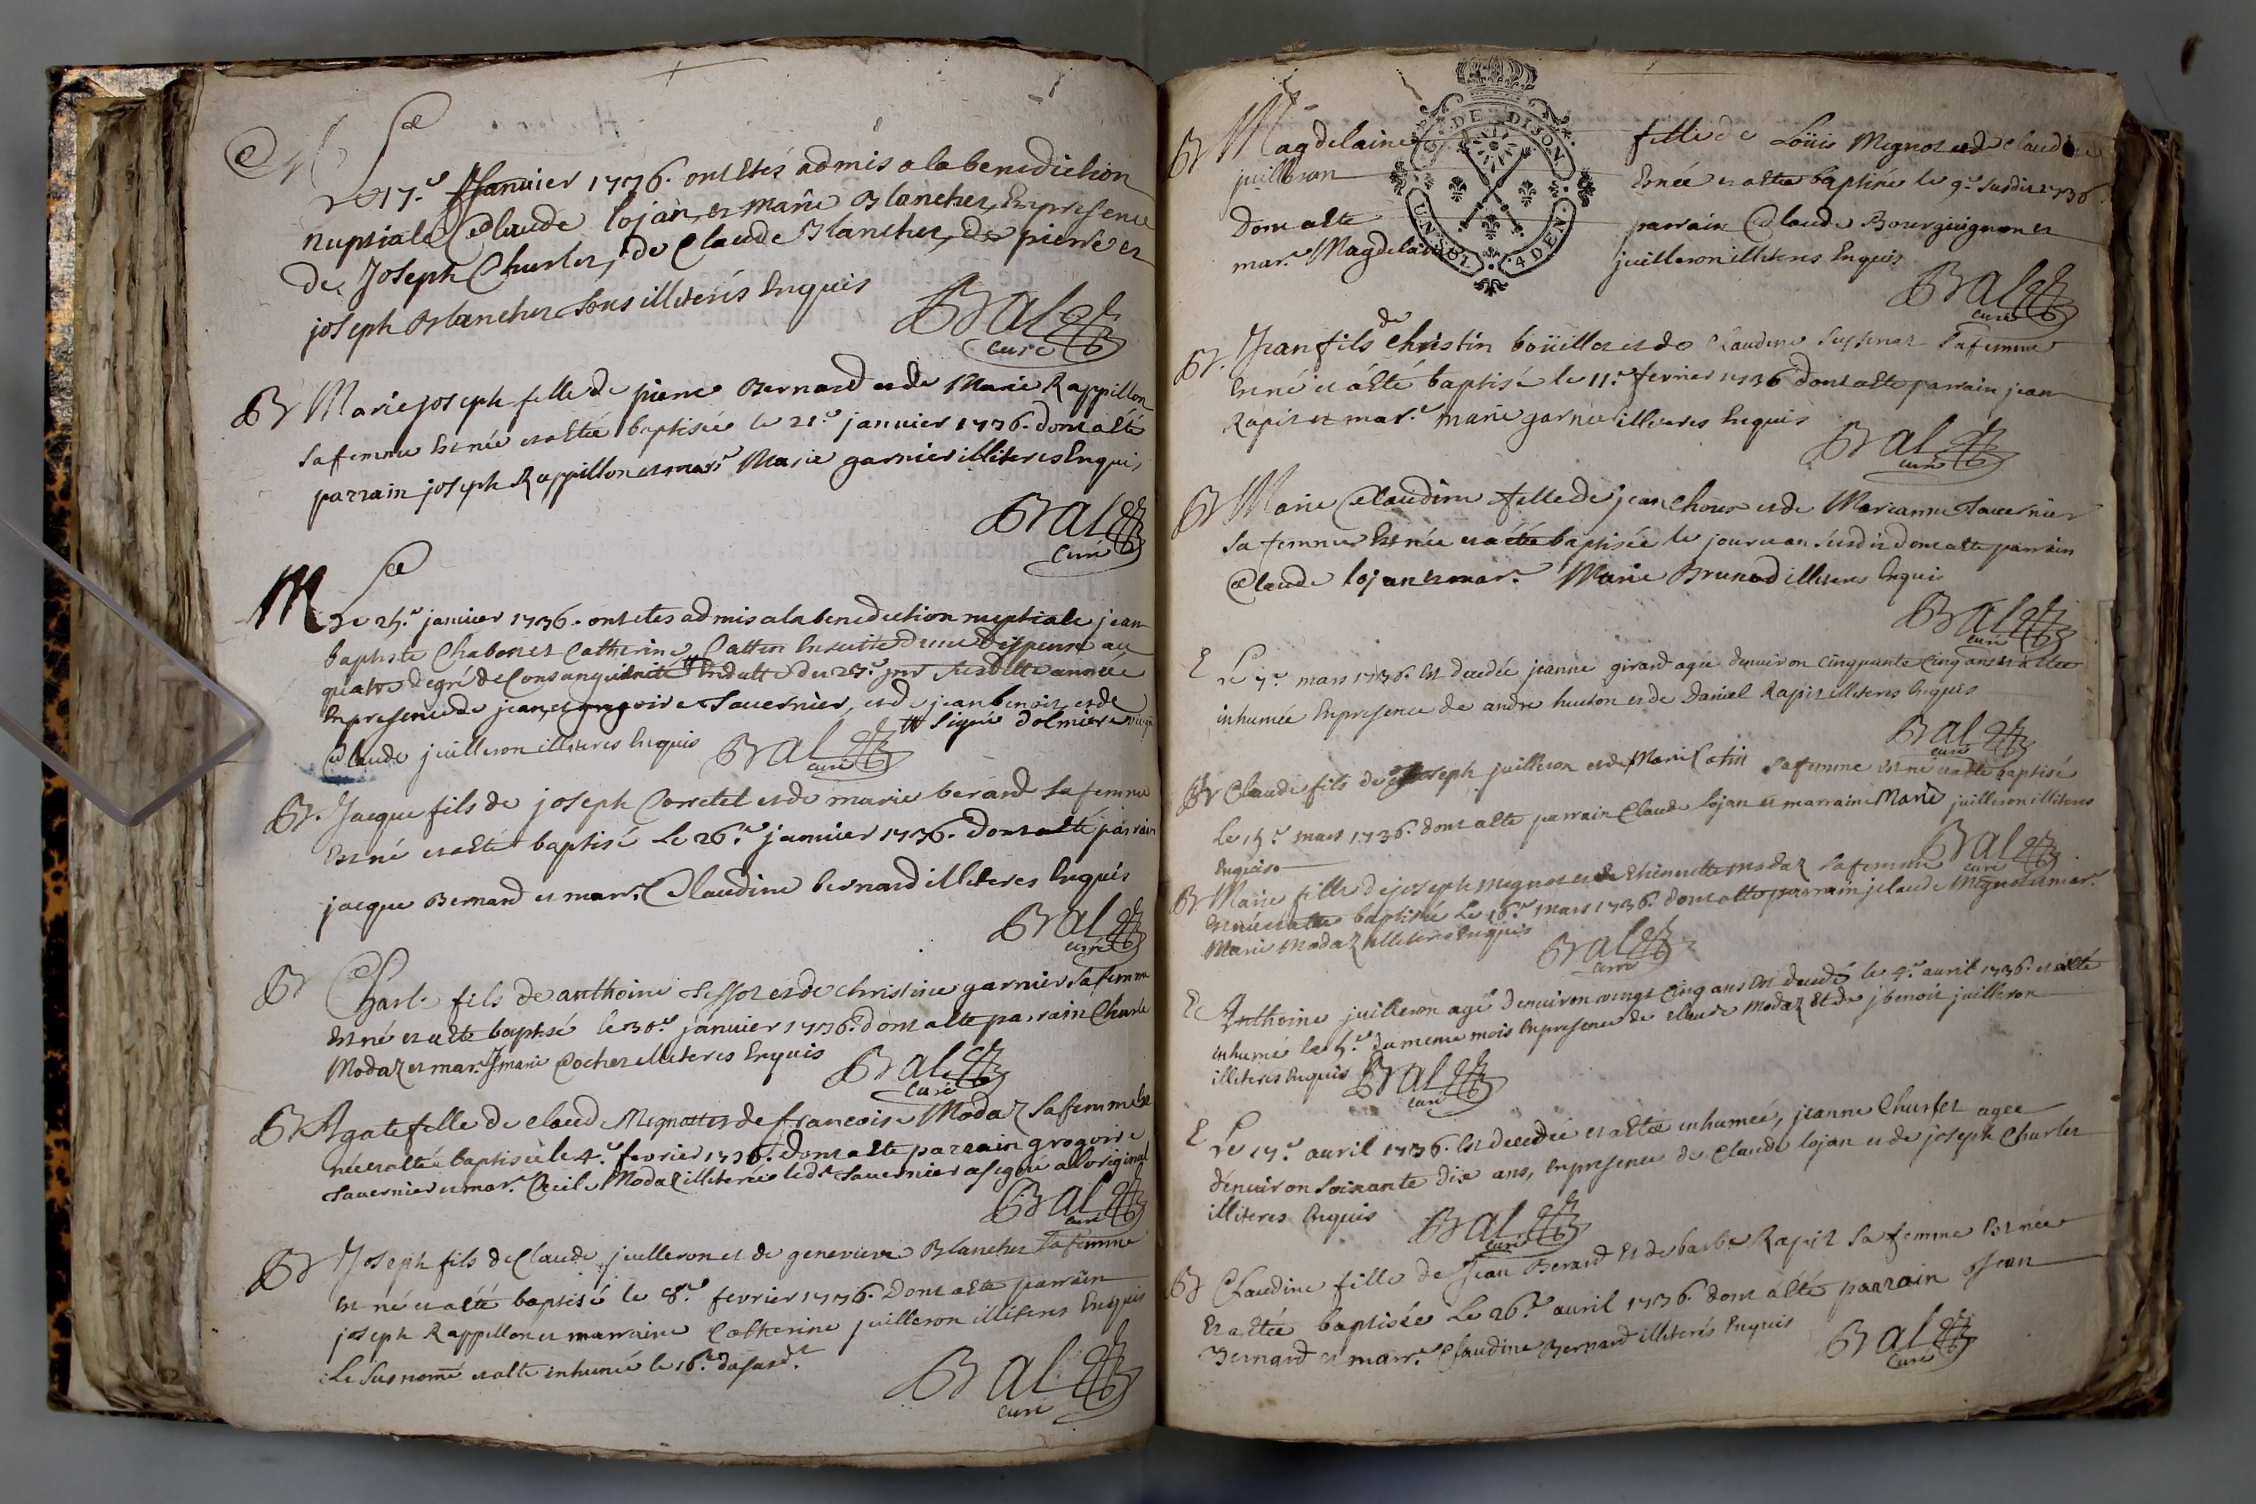 M Le
17.e Janvier 1736. ont etés admis a la benediction
nuptiale Claude lojan, et marie Blanchet, En presence
de Joseph Churlet, de Claude Blanchet, de pierre et
joseph Blanchet tous illiterés Enquis
Bal
curé
Bt Marie joseph fille de pierre Bernard et de Marie Rappillon
sa femme Est née et a Eté baptisée le 21.e janvier 1736. dont a été
parrain joseph Rappillon et marr.e Marie garnier illiteres Enquis
Bal
Curé
M Le
25.e janvier 1736. ont etes admis a la benediction nuptiale jean
baptiste Chabon et Catherine Cattin Ensuitte d'une Dispense au
quatre degré de Consanguinité En datte du 23.e jnr susditte année
En presence de jean, et gregoire Tavernier, et de jean benoit, et de
Signé dolmiere
Claude juilleron illiteres Enquis
Bal
curé
Bt. Jacque fils de joseph Corretet et de marie berard sa femme
Est né et a Eté baptisé Le 26.e janvier 1736. dont a eté parrain
jacque Bernard et marr.e Claudine bernard illiteres Enquis
Bal
curé
Bt Charle fils de anthoine Tissot et de christine garnier sa femme
Est né et a eté baptisé le 30.e janvier 1736. dont a eté parrain Charle
Modaz et mar.e Jmarie Cochet illiteres Enquis
Bal
Curé
Bt Agate fille de claude Mignot et de francoise Modaz sa femme Est
née et a eté baptisée le 4.e fevrier 1736. dont a eté parrain gregoire
Tavernier et mar.e Cecile Modaz illiterée led.t Tavernier a signé a l'original
Bal
curé
Bt Joseph fils de Claude juilleron et de genevieve Blanchet sa femme
Est né et a été baptisé le 8.e fevrier 1736. dont a eté parrain
joseph Rappillon et marraine Catherine juilleron illiteres Enquis
Le susnomé et a eté inhumé le 16.e
Bal
curé
Bt Magdelaine fille de Loüis Mignot et de claudine
juilleron Est née et a eté baptisée le 9.e susdit 1736
Dont a eté parrain Claude Bourguignon et
mar.e Magdelaine juilleron illiteres Enquis
G. DE DIJON
UN SOL 4 DEN
Bal
curé
Bt. Jean fils de christin boüillet et de Claudine sa femme
Est né et a Eté baptisé le 11.e fevrier 1736 dont a eté parrain jean
Rapit et mar.e marie garnier illiteres Enquis
Bal
curé
Bt Marie Claudine fille de jean Chour et de Marianne Tavernier
sa femme Est née et a été baptisée le jour et an susdit dont a eté parrain
Claude lojan et mar.e Marie Brunod illiteres Enquis
Bal
curé
E Le 7.e mars 1736. Est decedée jeanne girard agée denviron cinquante cinq ans et a etée
inhumée En presence de andre huuton et de Daniel Rapit illiteres Enquis
Bal
curé
Bt Claude fils de joseph juilleron et de Marie Catin sa femme Est né et a eté baptisé
Le 15.e mars 1736. dont a eté parrain Claude lojan et marraine Marie juilleron illiteres
Enquis.
Bal
curé
Bt Marie fille de joseph mignot et de Ethiennette modaz sa femme
Est née et a eté baptisée Le 16.e mars 1736. dont a eté parrain jclaude Mignot et mar.e
Marie Modaz illiteres Enquis
Bal
curé
Et Anthoine juilleron agé denviron vingt Cinq ans Est decedé le 4.e avril 1736. et a eté
inhumé le 5.e du meme mois En presence de claude Modaz Et de jbenoit juilleron
illiteres Enquis
Bal
curé
E Le 17.e avril 1736. Est decedée et a etée inhumée, jeanne Churlet agée
denviron soixante dix ans, en presence de Claude lojan et de joseph Churlet
illiteres Enquis
Bal
curé
Bt Claudine fille de Jean Berard Et de barbe Rapit sa femme Est née
Et a etée baptisée Le 26.e avril 1736. dont a été parrain Jean
Bernard et marr.e Claudine Bernard illiterés Enquis
Bal
Curé